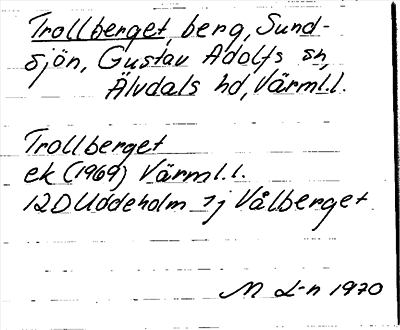 Trollberget, berg, Sund-
sjön, Gustav Adolfs sn,
Älvdals hd, Värml.l.
Trollberget
ek (1969) Värml.l.
12D Uddeholm 1j Vålberget
M L-n 1970